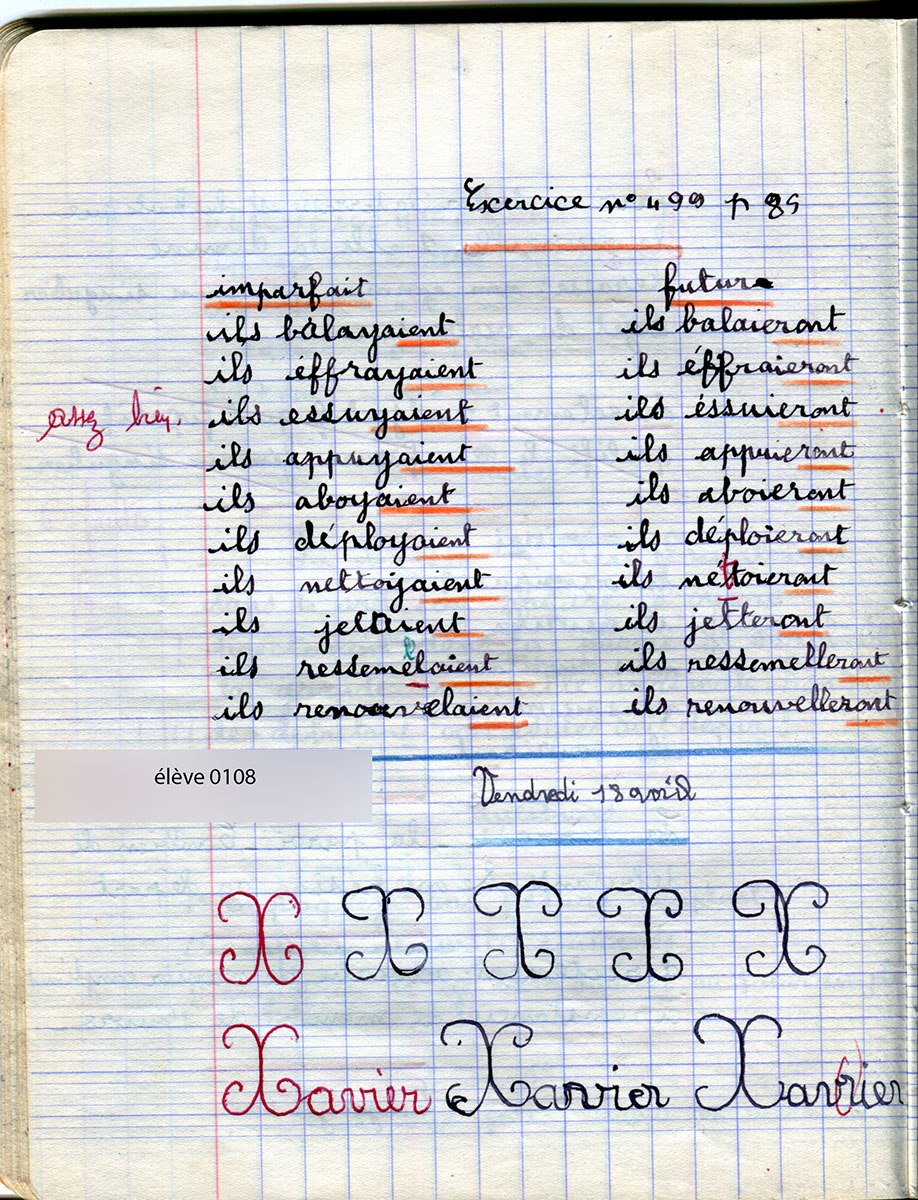 Exercice n° 499 p 85
imparfait futur
ils balayaient ils balaieront
ils éffrayaient ils éffraieront
assez bien. ils essuyaient ils éssuieront
ils appuyaient ils appuieront
ils aboyaient ils aboieront
ils déployaient ils déploieront
ils nettoyaient ils nettoieront
ils jetaient ils jetteront
ils ressemelaient ils ressemelleront
ils renouvelaient ils renouvelleront
élève 0108
Vendredi 18 avril
X X X X X
Xavier Xavier Xavier